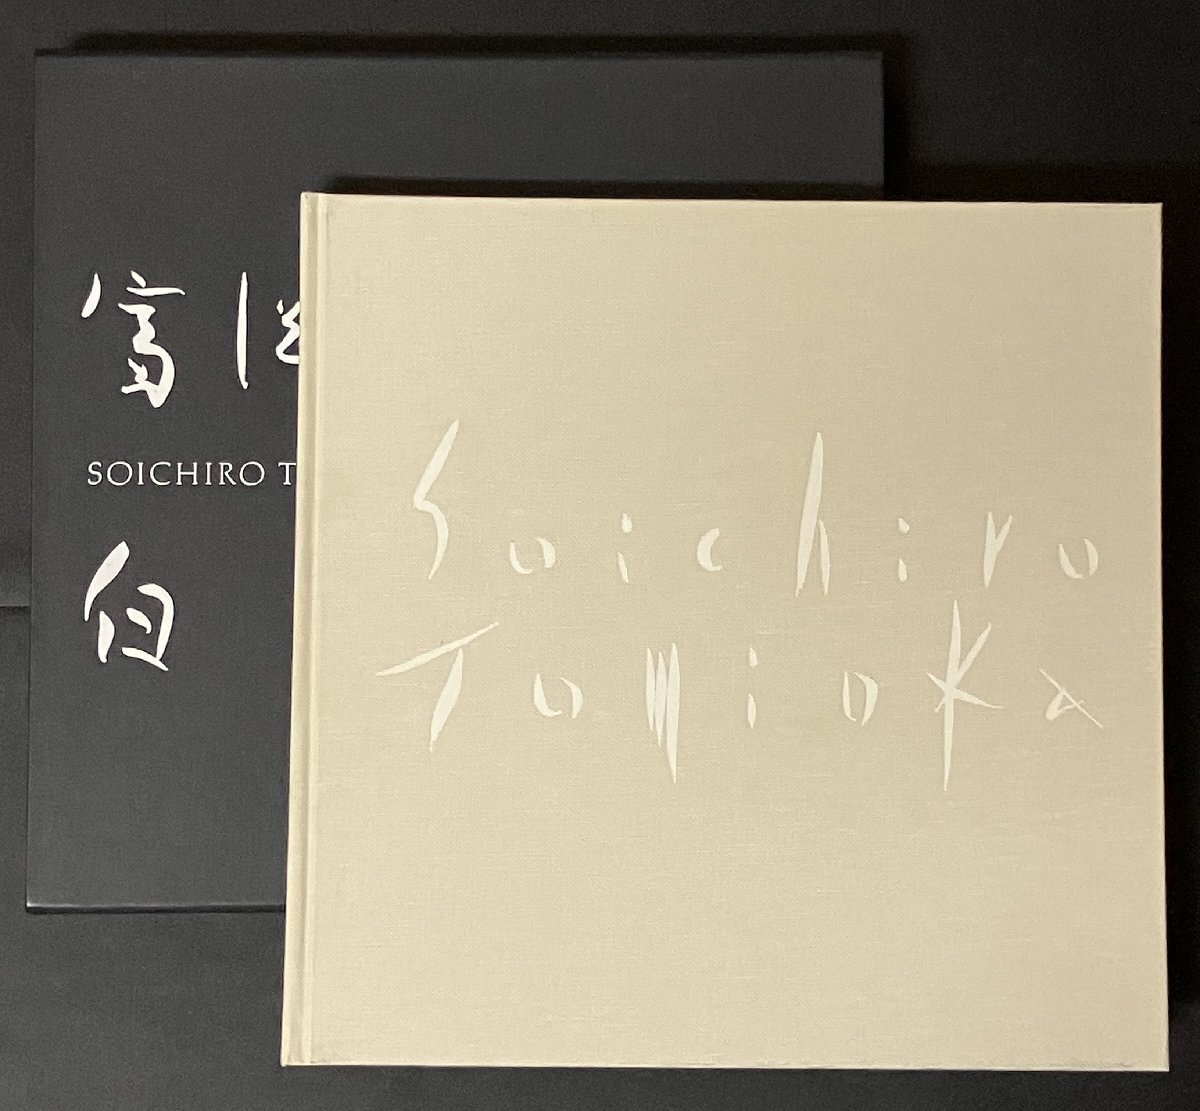 富
SOICHIRO T
白
Soichiro
Tomioka